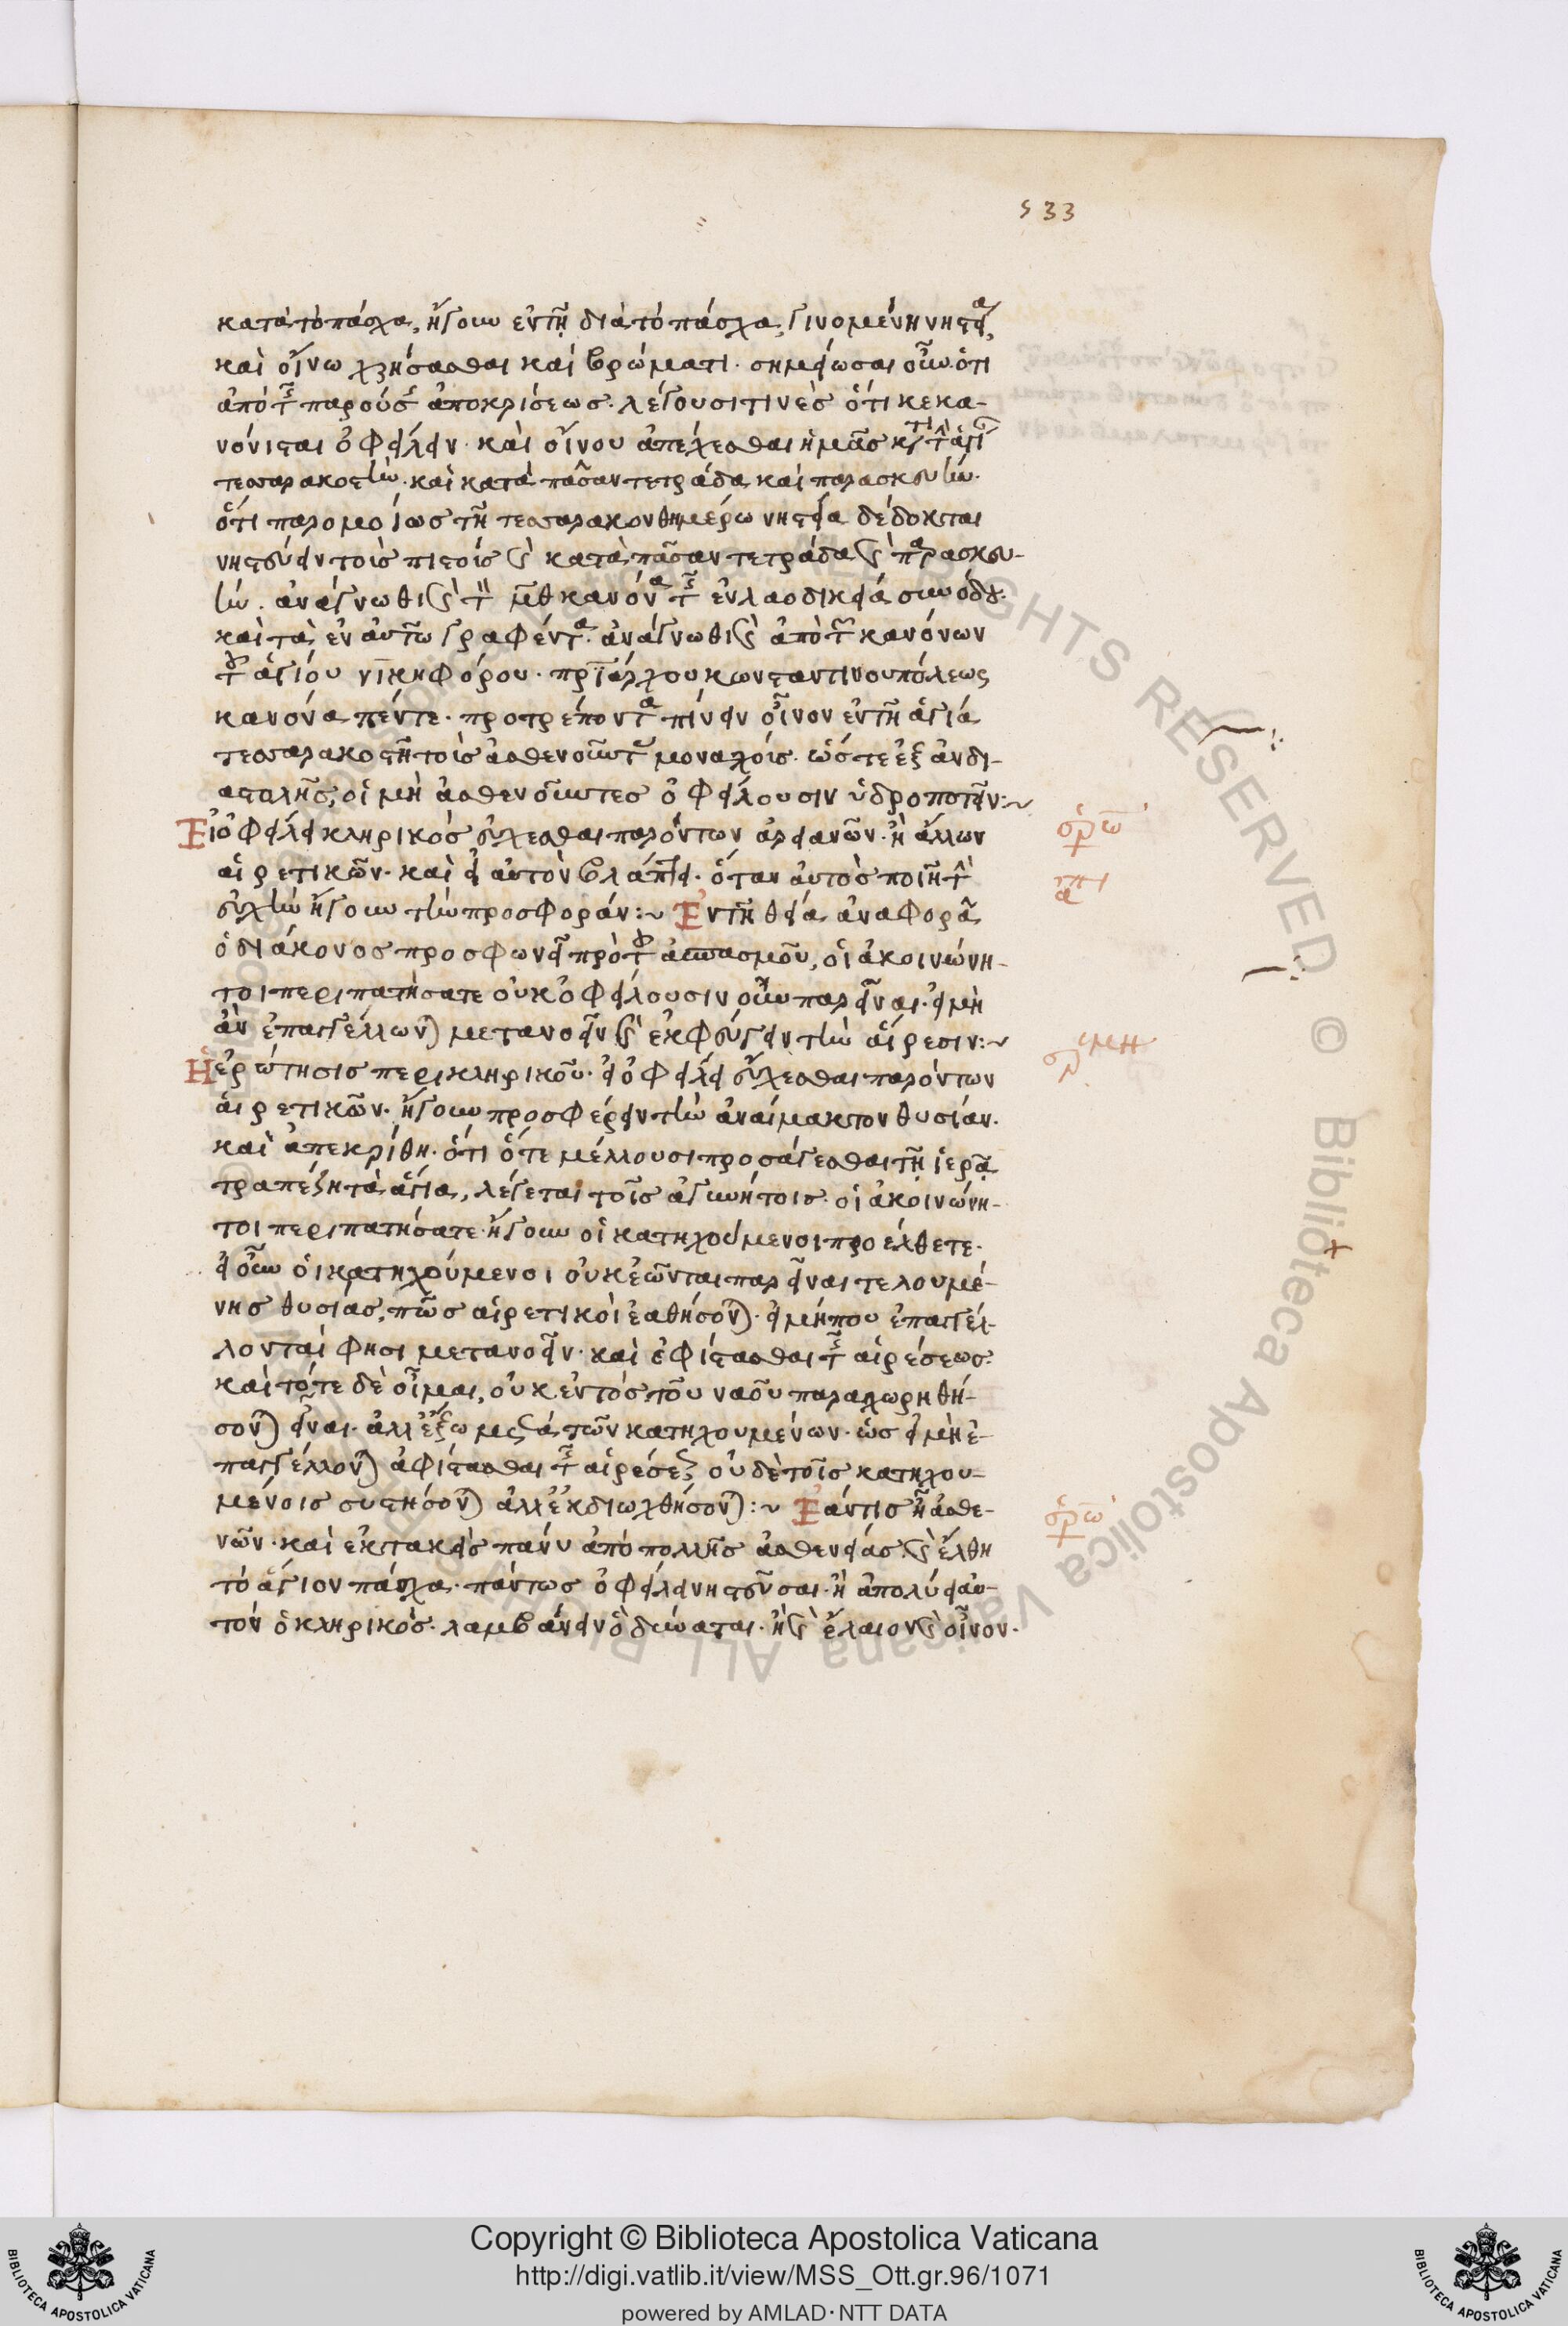 533
κατὰ τὸ πάσχα, ἤγουν ἐν τῇ διὰ τὸ πάσχα, γινομένη νηστεία,
καὶ οἴνω χρήσασθαι καὶ βρώματι· σημείωσαι οὖν ὅτι
ἀπὸ τῆς παρούσης ἀποκρίσεως· λέγουσι τινὲς ὅτι κεκα-
νόνισται ὀφείλειν· καὶ οἴνου ἀπέχεσθαι ἡμᾶς κατὰ τὴν ἁγίαν
τεσσαρακοστὴν· καὶ κατὰ πᾶσαν τετράδα καὶ παρασκευὴν·
ὅτι παρομοίως τῇ τεσσαρακονθημέρω νηστεία δέδοκται
νηστεύειν τοῖς πιστοῖς καὶ κατὰ πᾶσαν τετράδα καὶ παρασκευ-
ὴν· ἀνάγνωθι καὶ τὸν μθ κανόνα τῆς ἐν λαοδικεία συνόδου·
καὶ τὰ ἐν αὐτῶ γραφέντα· ἀνάγνωθι καὶ ἀπὸ τῶν κανόνων
τοῦ ἁγίου νικηφόρου· πριάρχου κωνσταντινουπόλεως
κανόνα πέντε· προτρέποντα πίνειν οἶνον ἐν τῇ ἁγία
τεσσαρακοστῇ τοῖς ἀσθενοῦντας μοναχοῖς· ὥστε ἐξ ἀνδι-
αστολῆς, οἱ μὴ ἀσθενοῦντες ὀφείλουσιν ὑδροποτεῖν:~
Εἰ ὀφείλει κληρικὸς εὔχεσθαι παρόντων ἀρειανῶν· ἢ ἄλλων
αἱρετικῶν· καὶ εἰ αὐτὸν βλάπτει· ὅταν αὐτὸς ποιῇ τὴν
εὐχὴν ἤγουν τὴν προσφοράν:~ Ἐν τῇ θεία ἀναφορᾶ
ὁ διάκονος προσφωνεῖ πρὸ τοῦ ἀσπασμοῦ, οἱ ἀκοινώνη-
τοι περιπατήσατε οὐκ ὀφείλουσιν οὖν παρεῖναι· εἰ μὴ
ἂν ἐπαγγέλλωνται μετανοεῖν καὶ ἐκφεύγειν τὴν αἵρεσιν:~
Ἡ ἐρώτησις περὶ κληρικοῦ· εἰ ὀφείλει εὔχεσθαι παρόντων
αἱρετικῶν· ἤγουν προσφέρειν τὴν ἀναίμακτον θυσίαν·
καὶ ἀπεκρίθη· ὅτι ὅτε μέλλουσι προσάγεσθαι τῇ ἱερᾷ
τραπέζῃ τὰ ἅγια, λέγεται τοῖς ἀγμυήτοις· οἱ ἀκοινώνη-
τοι περιπατήσατε· ἤγουν οἱ κατηχούμενοι προέλθετε·
εἰ οὖν οἱ κατηχούμενοι οὐκ ἐῶνται παρεῖναι τελουμέ-
νης θυσίας, πῶς αἱρετικοὶ ἐαθήσονται· εἰ μήπου ἐπαγγέλ-
λονταί φησι μετανοεῖν· καὶ ἀφίστασθαι τῆς αἱρέσεως·
καὶ τότε δὲ οἶμαι, οὐκ ἐντὸς τοῦ ναοῦ παραχωρηθή-
σονται εἶναι· ἀλλ' ἔξω μετὰ τῶν κατηχουμένων· ὡς εἰ μὴ ἐ-
παγγέλλονται ἀφίστασθαι τῆς αἱρέσεως οὐδὲ τοῖς κατηχου-
μένοις συστήσονται ἀλλ' ἐκδιωχθήσονται:~ Ἐάν τις ᾖ ἀσθε-
νῶν· καὶ ἐκτακεὶς πάνυ ἀπὸ πολλῆς ἀσθενείας· καὶ ἔλθη
τὸ ἅγιον πάσχα· πάντως ὀφείλει νηστεῦσαι· ἢ ἀπολύει αὐ-
τὸν ὁ κληρικὸς· λαμβάνειν ὃ δύναται· ἢ καὶ ἔλαιον καὶ οἶνον·
ἐρώ
ἀπ
ἑρμη
ἐρώ
Copyright © Biblioteca Apostolica Vaticana
http://digi.vatlib.it/view/MSS_Ott.gr.96/1071
powered by AMLAD·NTT DATA
BIBLIOTECA APOSTOLICA VATICANA
BIBLIOTECA APOSTOLICA VATICANA